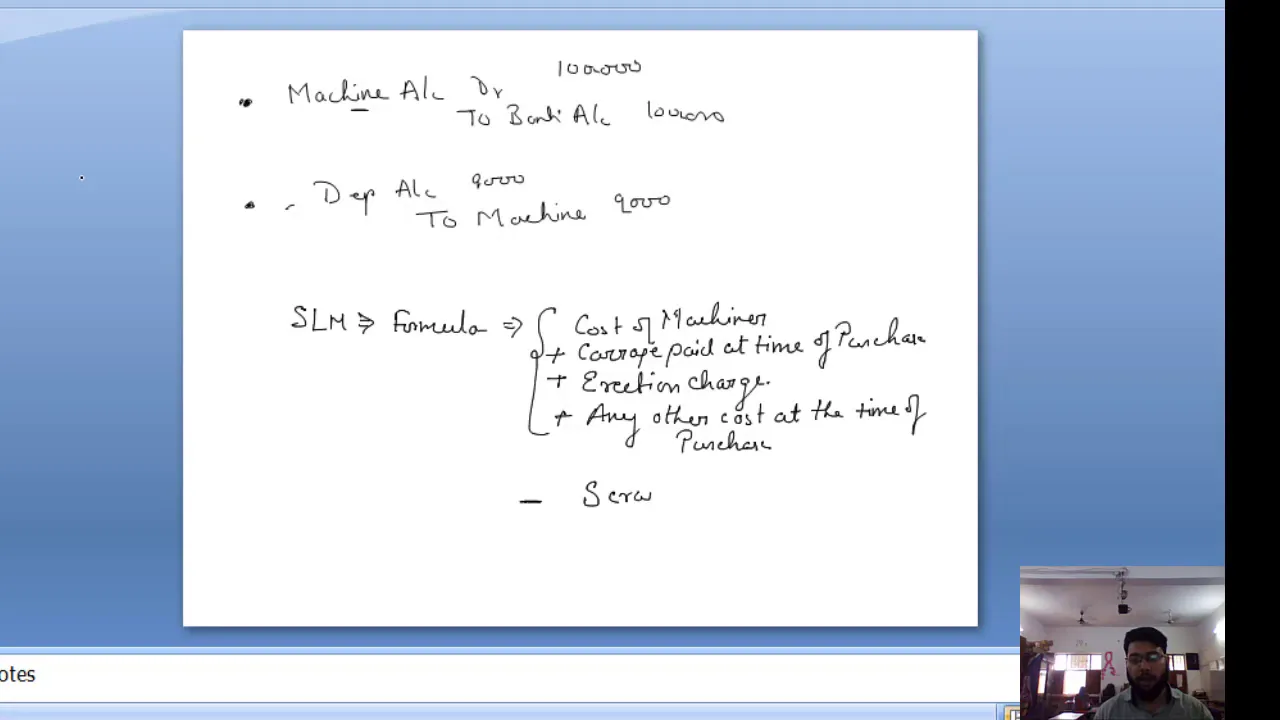 Machine A/c Dr 100000
To Bank A/c 100000
Dep A/c 9000
To Machine 9000
SLM ⇒ Formula ⇒ { Cost of Machiner
+ Carrage paid at time of Purchase
+ Erection charge.
+ Any other cost at the time of
Purchase
— Scra
otes